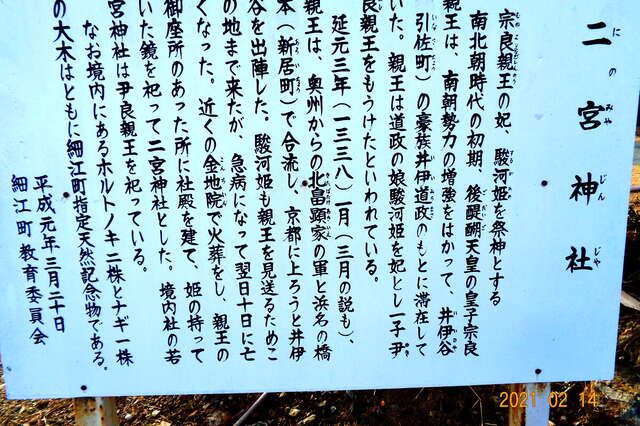 二宮神社
にのみやじんじゃ
宗良親王の妃、駿河姫を祭神とする
南北朝時代の初期、後醍醐天皇の皇子宗良
親王は、南朝勢力の増強をはかって、井伊谷
引佐町)の豪族井伊道政のもとに滞在して
いた。親王は道政の娘駿河姫を妃とし一子尹
良親王をもうけたといわれている。
延元三年(一三三八)一月(三月の説も)、
親王は、奥州からの北畠顕家の軍と浜名の橋
本(新居町)で合流し、京都に上ろうと井伊
谷を出陣した。駿河姫も親王を見送るためこ
の地まで来たが、急病になって翌日十日に亡
くなった。近くの金地院で火葬をし、親王の
御座所のあった所に社殿を建て、姫の持って
いた鏡を祀って二宮神社とした。境内社の若
宮神社は尹良親王を祀っている。
なお境内にあるホルトノキ二株とナギ一株
の大木はともに細江町指定天然記念物である。
平成元年三月二十日
細江町教育委員会
2021 02 14